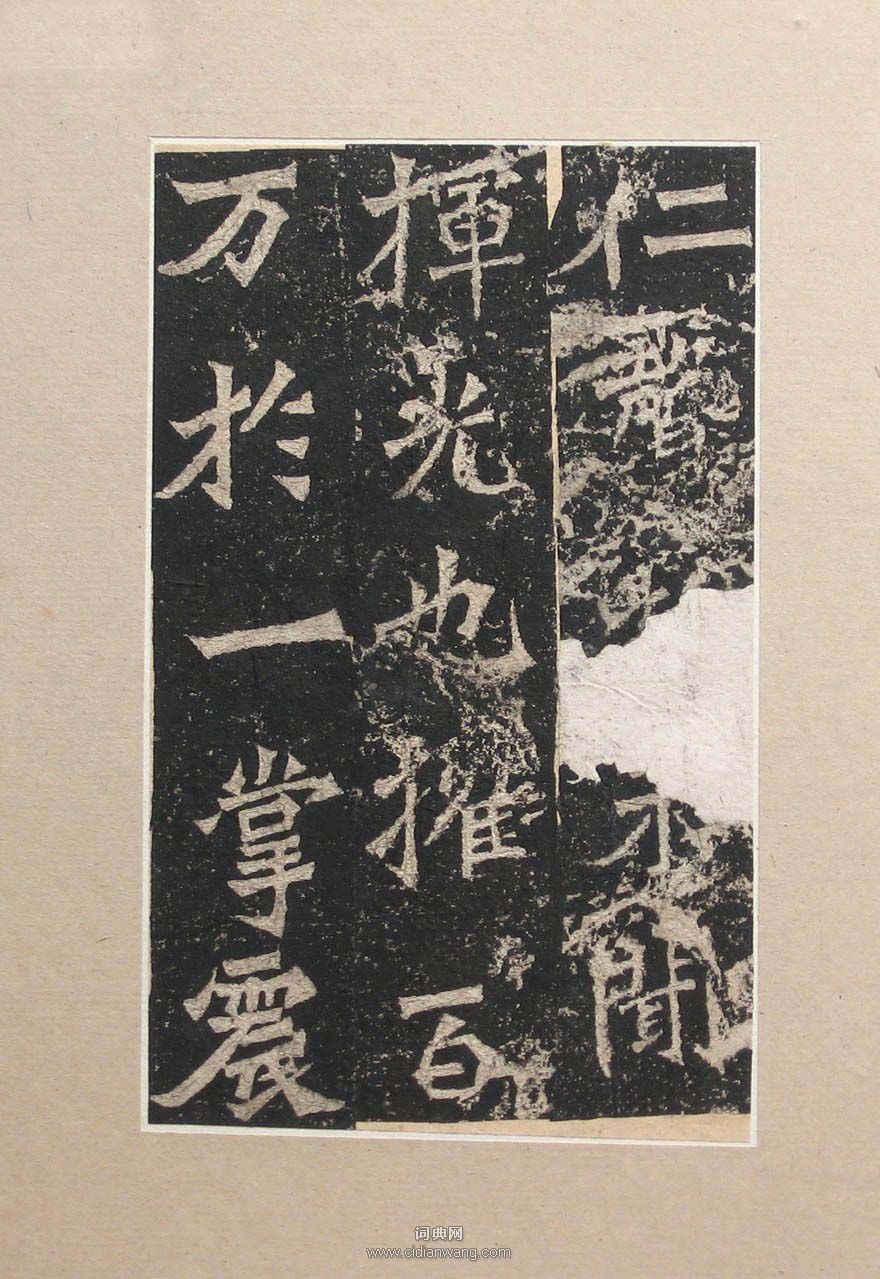 仁聞
揮光也摧百
万於一掌震
词典网
www.cidianwang.com